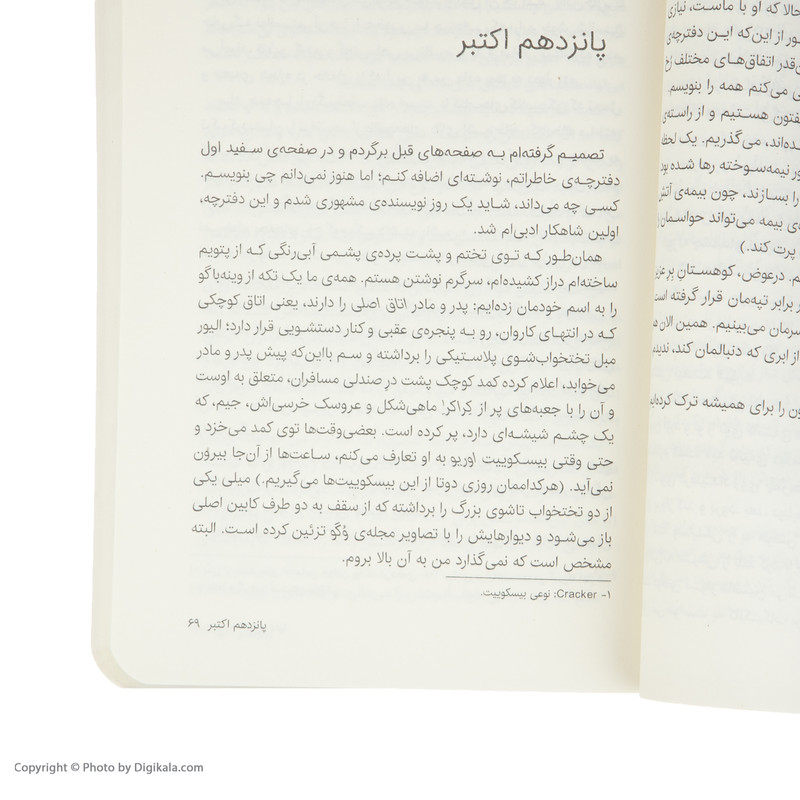 حالا که او با ماست، نیازی
ور از این‌که این دفترچه‌ی
قدر اتفاق‌های مختلف رخ
ی می‌کنم همه را بنویسم.
فتون هستیم و از راسته‌ی
ده‌اند، می‌گذریم. یک لحظه
ور نیمه‌سوخته رها شده بود
را بسازند، چون بیمه‌ی آتش
ی بیمه می‌تواند حواسمان را
پرت کند.)
م. درعوض، کوهستانِ پر
برابر تپه‌مان قرار گرفته است
سرمان می‌بینیم. همین الان
از ابری که دنبالمان کند، ندیدیم
ون را برای همیشه ترک کرده‌ایم
پانزدهم اکتبر
تصمیم گرفته‌ام به صفحه‌های قبل برگردم و در صفحه‌ی سفید اول
دفترچه‌ی خاطراتم، نوشته‌ای اضافه کنم؛ اما هنوز نمی‌دانم چی بنویسم.
کسی چه می‌داند، شاید یک روز نویسنده‌ی مشهوری شدم و این دفترچه،
اولین شاهکار ادبی‌ام شد.
همان‌طور که توی تختم و پشت پرده‌ی پشمی آبی‌رنگی که از پتویم
ساخته‌ام دراز کشیده‌ام، سرگرم نوشتن هستم. همه‌ی ما یک تکه از وینه‌باگو
را به اسم خودمان زده‌ایم: پدر و مادر اتاق اصلی را دارند، یعنی اتاق کوچکی
که در انتهای کاروان، رو به پنجره‌ی عقبی و کنار دستشویی قرار دارد؛ الیور
مبل تختخواب‌شوی پلاستیکی را برداشته و سم بااین‌که پیش پدر و مادر
می‌خوابد، اعلام کرده کمد کوچک پشت درِ صندلی مسافران، متعلق به اوست
و آن را با جعبه‌های پر از کِراکرِ۱ ماهی‌شکل و عروسک خرسی‌اش، جیم، که
یک چشم شیشه‌ای دارد، پر کرده است. بعضی‌وقت‌ها توی کمد می‌خزد و
حتی وقتی بیسکوییت اوریو به او تعارف می‌کنم، ساعت‌ها از آن‌جا بیرون
نمی‌آید. (هرکداممان روزی دوتا از این بیسکوییت‌ها می‌گیریم.) میلی یکی
از دو تختخواب تاشوی بزرگ را برداشته که از سقف به دو طرف کابین اصلی
باز می‌شود و دیوارهایش را با تصاویر مجله‌ی وُگ تزئین کرده است. البته
مشخص است که نمی‌گذارد من به آن بالا بروم.
۱- Cracker: نوعی بیسکوییت.
پانزدهم اکتبر ۶۹
Copyright © Photo by Digikala.com